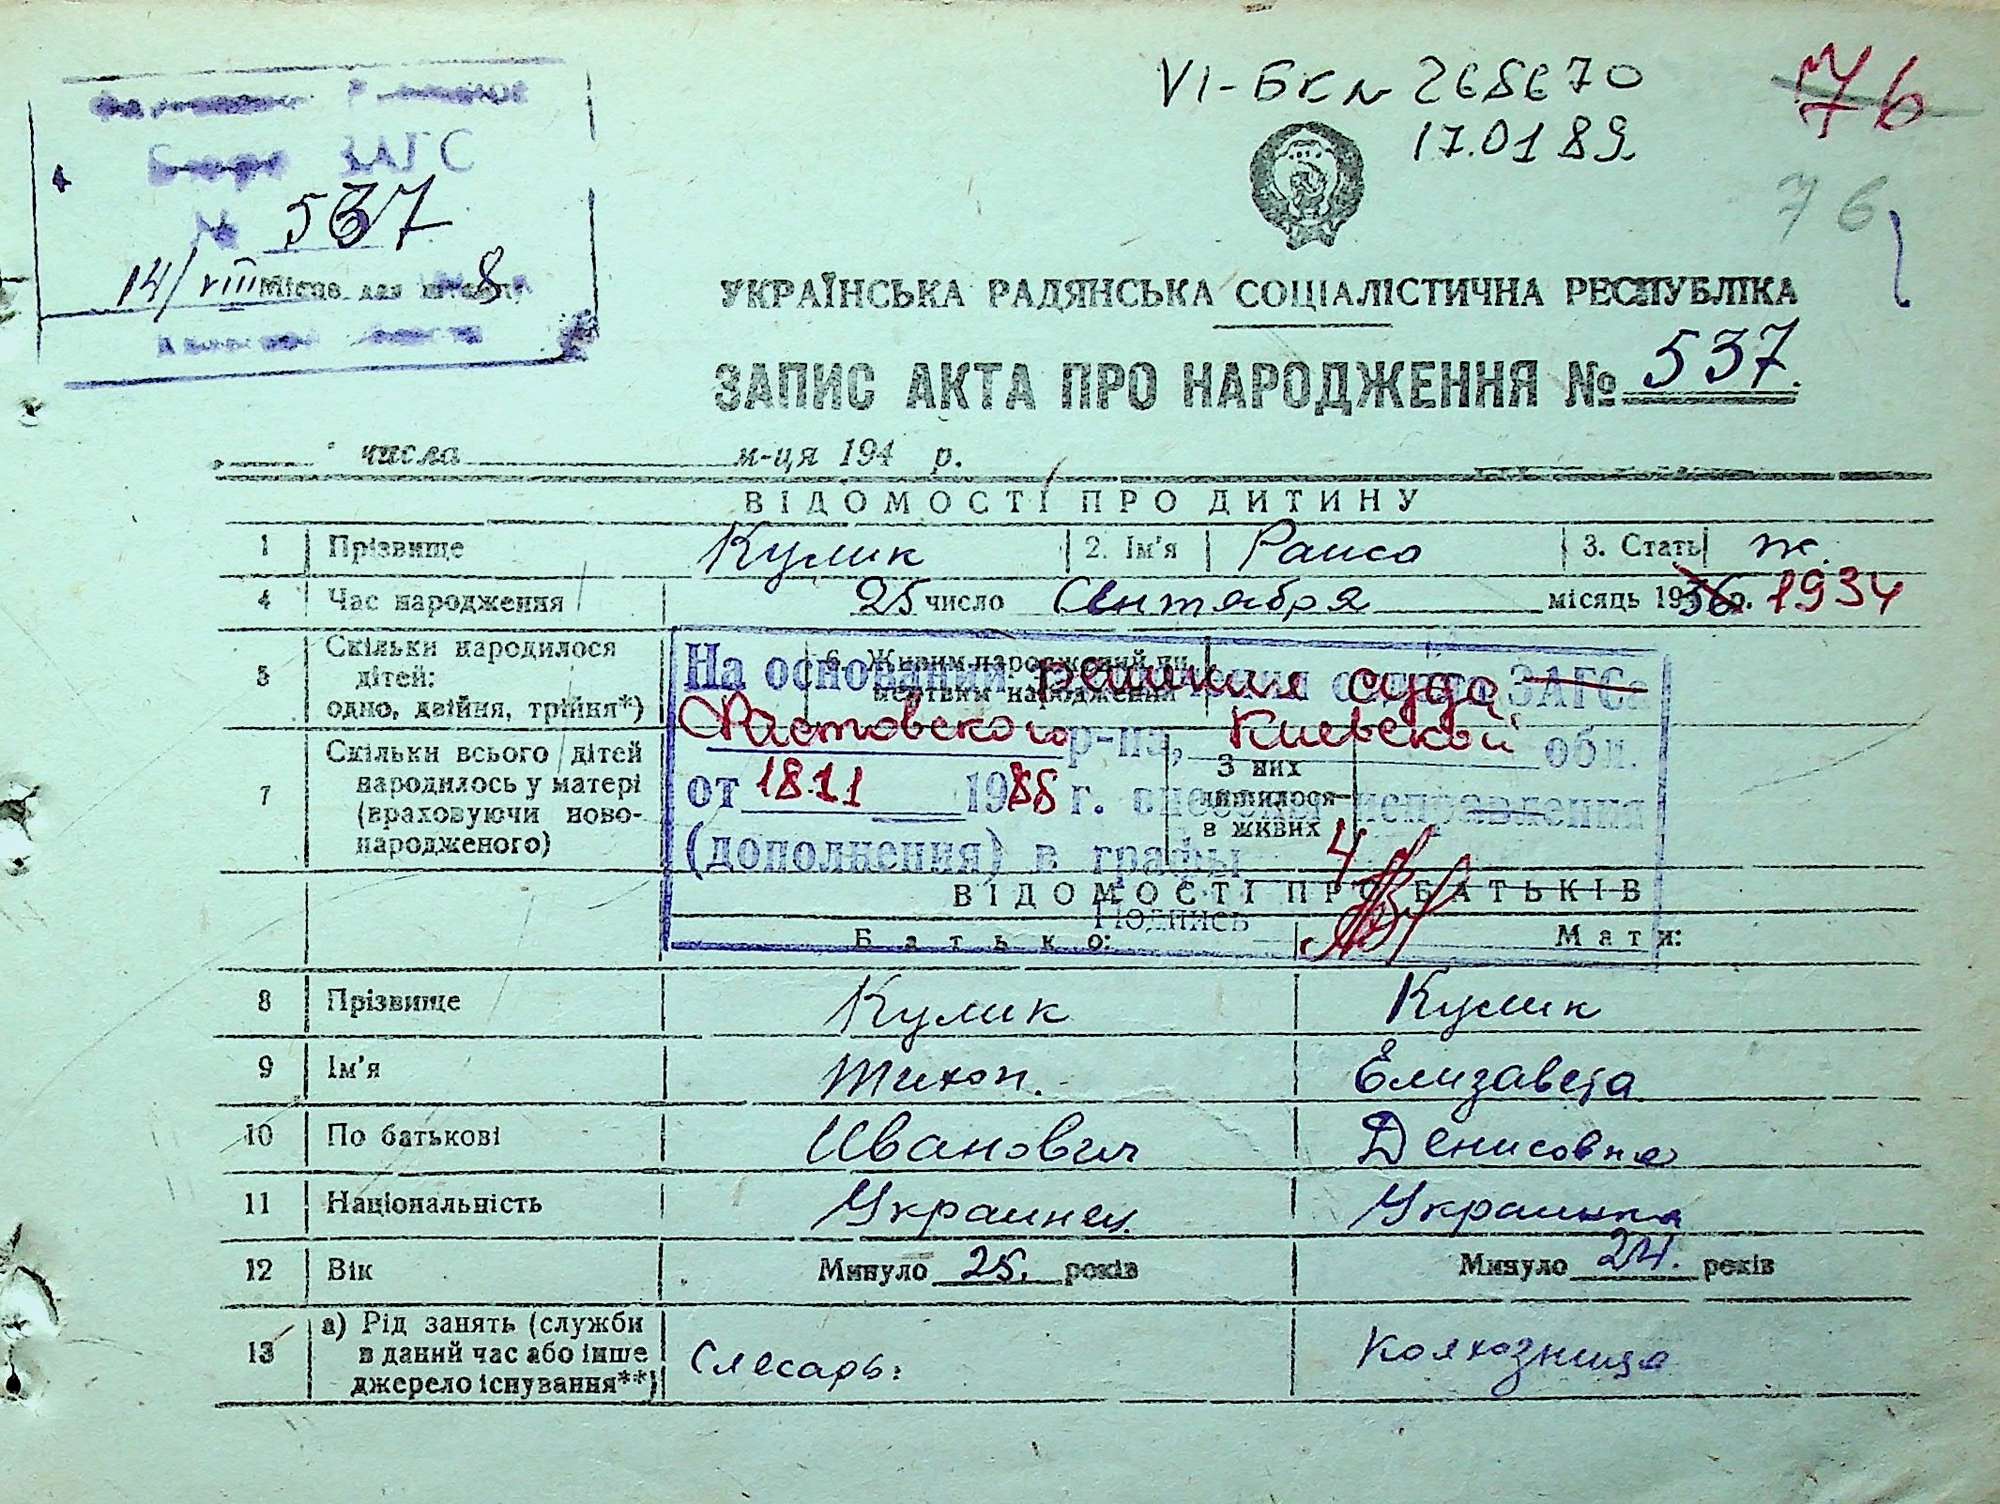 VI-БК № 268670
76
17.01 89
76
ЗАГС
№ 537
14/VIII Місце для 8
УКРАЇНСЬКА РАДЯНСЬКА СОЦІАЛІСТИЧНА РЕСПУБЛІКА
ЗАПИС АКТА ПРО НАРОДЖЕННЯ № 537.
числа м-ця 194 р.
ВІДОМОСТІ ПРО ДИТИНУ
1 Прізвище Кулик 2. Ім'я Раиса 3. Стать ж.
4 Час народження 25 число Сентября місяць 1936 р. 1934
5 Скільки народилося дітей: одно, двійня, трійня*)
6. Живим народжений чи мертвим народжений
7 Скільки всього дітей народилось у матері (враховуючи новонародженого)
З них лишилося в живих
На основании решения суда ЗАГСа
Фастовского р-на, Киевской обл.
от 18.11 1988 г. внесены исправления
(дополнения) в графы 4
Подпись
ВІДОМОСТІ ПРО БАТЬКІВ
Батько: Мати:
8 Прізвище Кулик Кулик
9 Ім'я Тихон. Елизавета
10 По батькові Иванович Денисовна
11 Національність Украинец Украинка
12 Вік Минуло 25. років Минуло 24. років
13 а) Рід занять (служби в даний час або інше джерело існування**) Слесарь. Колхозница